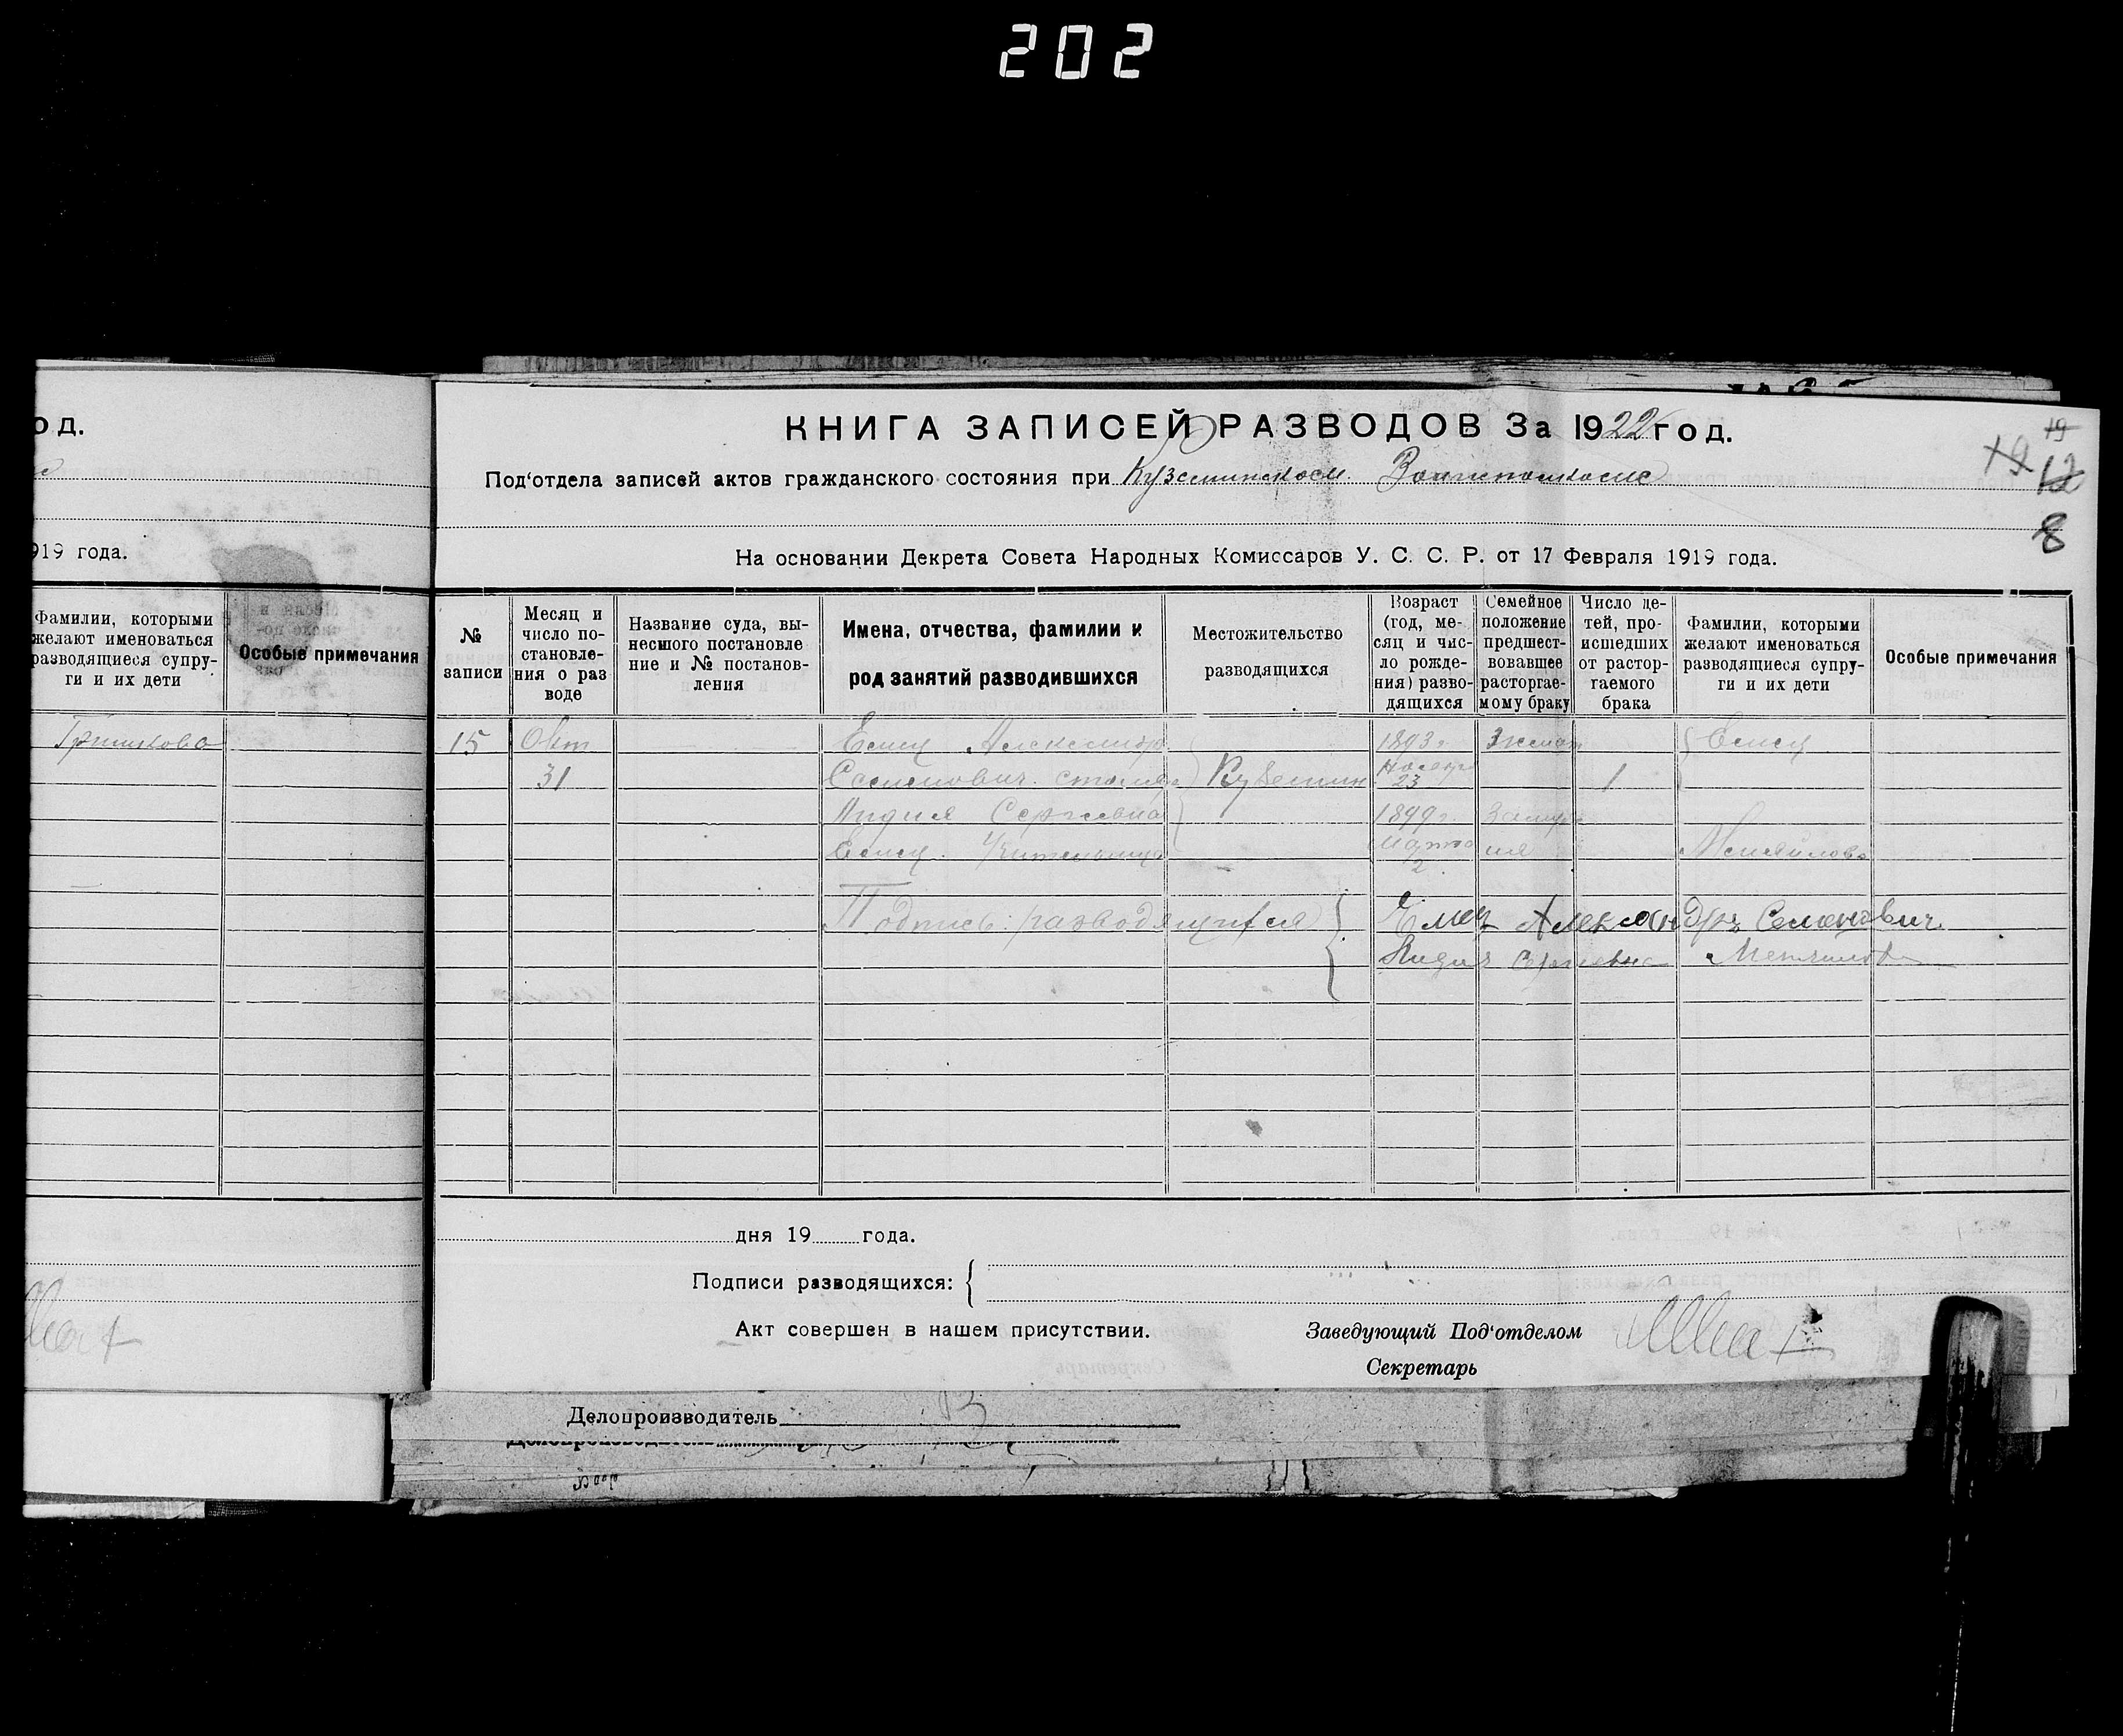 202
од.
919 года.
Фамилии, которыми
желают именоваться
разводящиеся супру-
ги и их дети
Особые примечания
Гришкова
КНИГА ЗАПИСЕЙ РАЗВОДОВ За 1922 год.
19
19
12
8
Под‘отдела записей актов гражданского состояния при Куземинском
На основании Декрета Совета Народных Комиссаров У. С. С. Р. от 17 Февраля 1919 года.
№
записи
Месяц и
число по-
становле-
ния о раз
воде
Название суда, вы-
несшого постановле
ние и № постанов-
ления
Имена, отчества, фамилии и
род занятий разводившихся
Местожительство
разводящихся
Возраст
(год, ме-
сяц и чис-
ло рожде-
ния) разво-
дящихся
Семейное
положение
предшест-
вовавшее
расторгае-
мому браку
Число де-
тей, про-
исшедших
от растор-
гаемого
брака
Фамилии, которыми
желают именоваться
разводящиеся супру-
ги и их дети
Особые примечания
15 Окт Емец Александр 1893 г. Емец
31 Семенович 23 1
Лидия Сергеевна 1899 г.
Емец Учительница Марта
2
Подпись разводящихся Емец Александръ Семеновичъ
Лидия Сергеевна
дня 19 года.
Подписи разводящихся:
Акт совершен в нашем присутствии. Заведующий Под‘отделом
Секретарь
Делопроизводитель